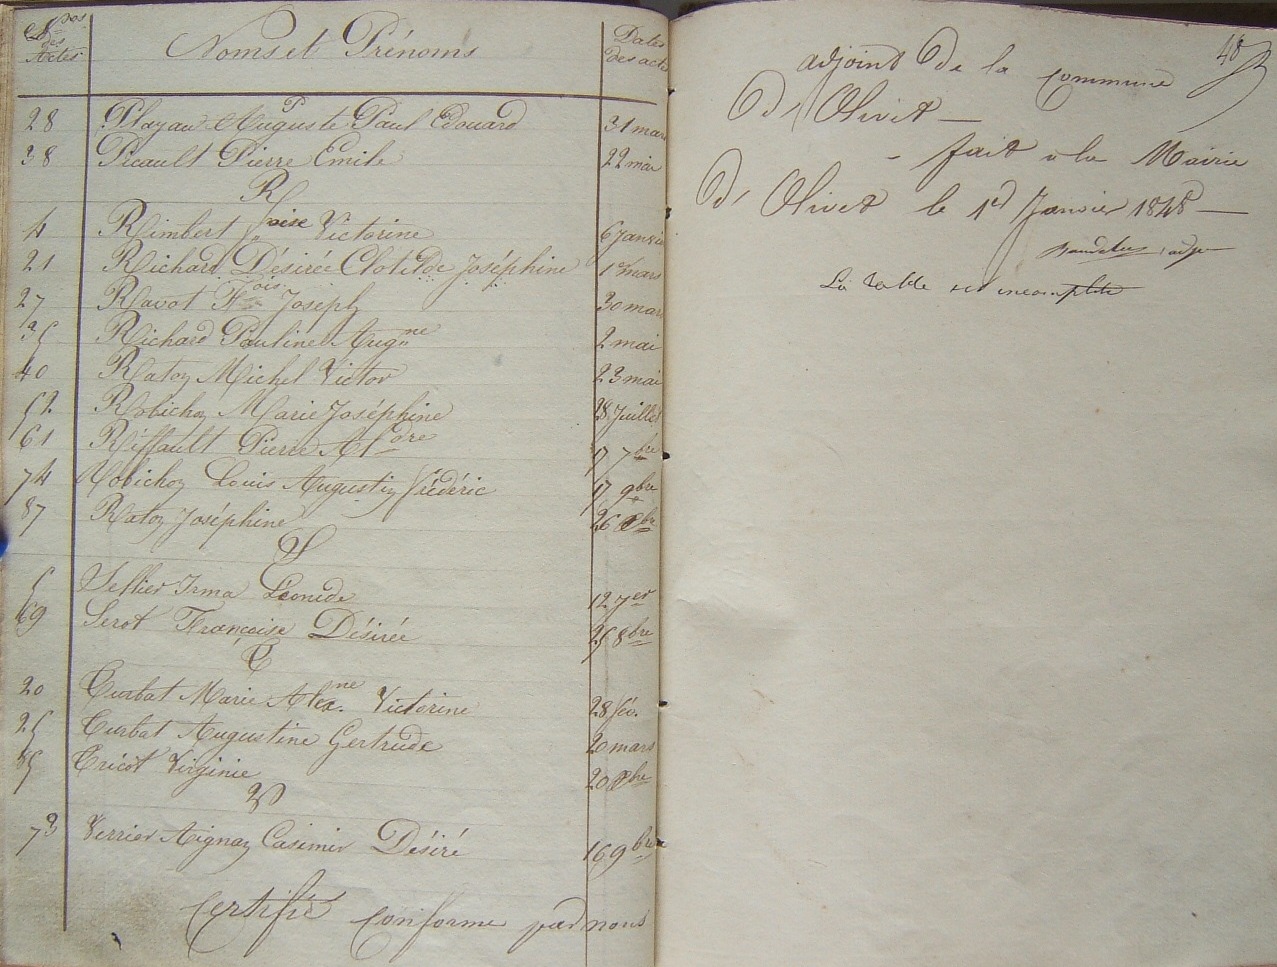 Nos des Actes Noms et Prénoms Dates des actes
P
28 Playau Auguste Paul Edouard 31 mars
38 Picault Pierre Emile 22 mai
R
4 Rimbert Victorine 6 Janvi
21 Richard Désirée Clotilde Joséphine 1er mars
27 Ravot Fois Joseph 30 mars
35 Richard Pauline Augne 2 mai
40 Raton Michel Victor 23 mai
52 Robichon Marie Joséphine 28 Juillet
61 Riffault Pierre Aldre 17 7bre
74 Robichon Louis Augustin Frédéric 17 9bre
87 Raton Joséphine 26 Xbre
S
5 Sellier Irma Léonède 12 Jer
69 Serot Françoise Désirée 25 8bre
T
20 Turbat Marie Alexne Victorine 28 fév.
25 Turbat Augustine Gertrude 20 mars
85 Tricot Virginie 20 Xbre
V
73 Verrier Aignan Casimir Désiré 16 9bre
Certifié Conforme par nous
48
adjoint De la Commune
D'Olivet —
- fait à la Mairie
D'Olivet le 1er Janvier 1848 —
La table est incomplète